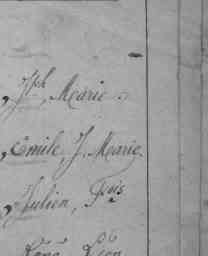 Jph, Marie.
Emile, J. Marie.
Julien, Fois
René, Léon